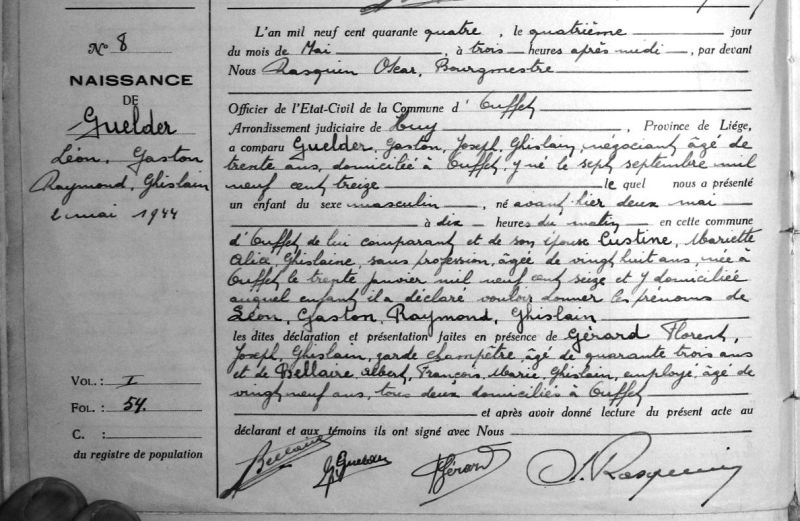 N° 8
NAISSANCE
DE
Guelder
Léon, Gaston
Raymond, Ghislain
2 mai 1944
VOL. : I
FOL. : 54.
C. :
du registre de population
L'an mil neuf cent quarante quatre, le quatrième jour
du mois de Mai, à trois heures après midi, par devant
Nous Rasquin Oscar, Bourgmestre
Officier de l'Etat-Civil de la Commune d'Ouffet
Arrondissement judiciaire de Huy, Province de Liége,
a comparu Guelder, Gaston, Joseph, Ghislain, négociant âgé de
trente ans, domicilié à Ouffet, y né le sept septembre mil
neuf cent treize le quel nous a présenté
un enfant du sexe masculin, né avant hier deux mai
à dix heures du matin en cette commune
d'Ouffet de lui comparant et de son épouse Custine, Mariette
Alia Ghislaine, sans profession, âgée de vingt huit ans, née à
Ouffet le trente janvier mil neuf cent seize et y domiciliée
auquel enfant il a déclaré vouloir donner les prénoms de
Léon, Gaston, Raymond, Ghislain
les dites déclaration et présentation faites en présence de Gérard Florent,
Joseph, Ghislain, garde champêtre, âgé de quarante trois ans
et de Bellaire Albert, François, Marie, Ghislain, employé, âgé de
vingt neuf ans, tous deux domiciliés à Ouffet
et après avoir donné lecture du présent acte au
déclarant et aux témoins ils ont signé avec Nous
Bellaire G Guelder Gérard O. Rasquin